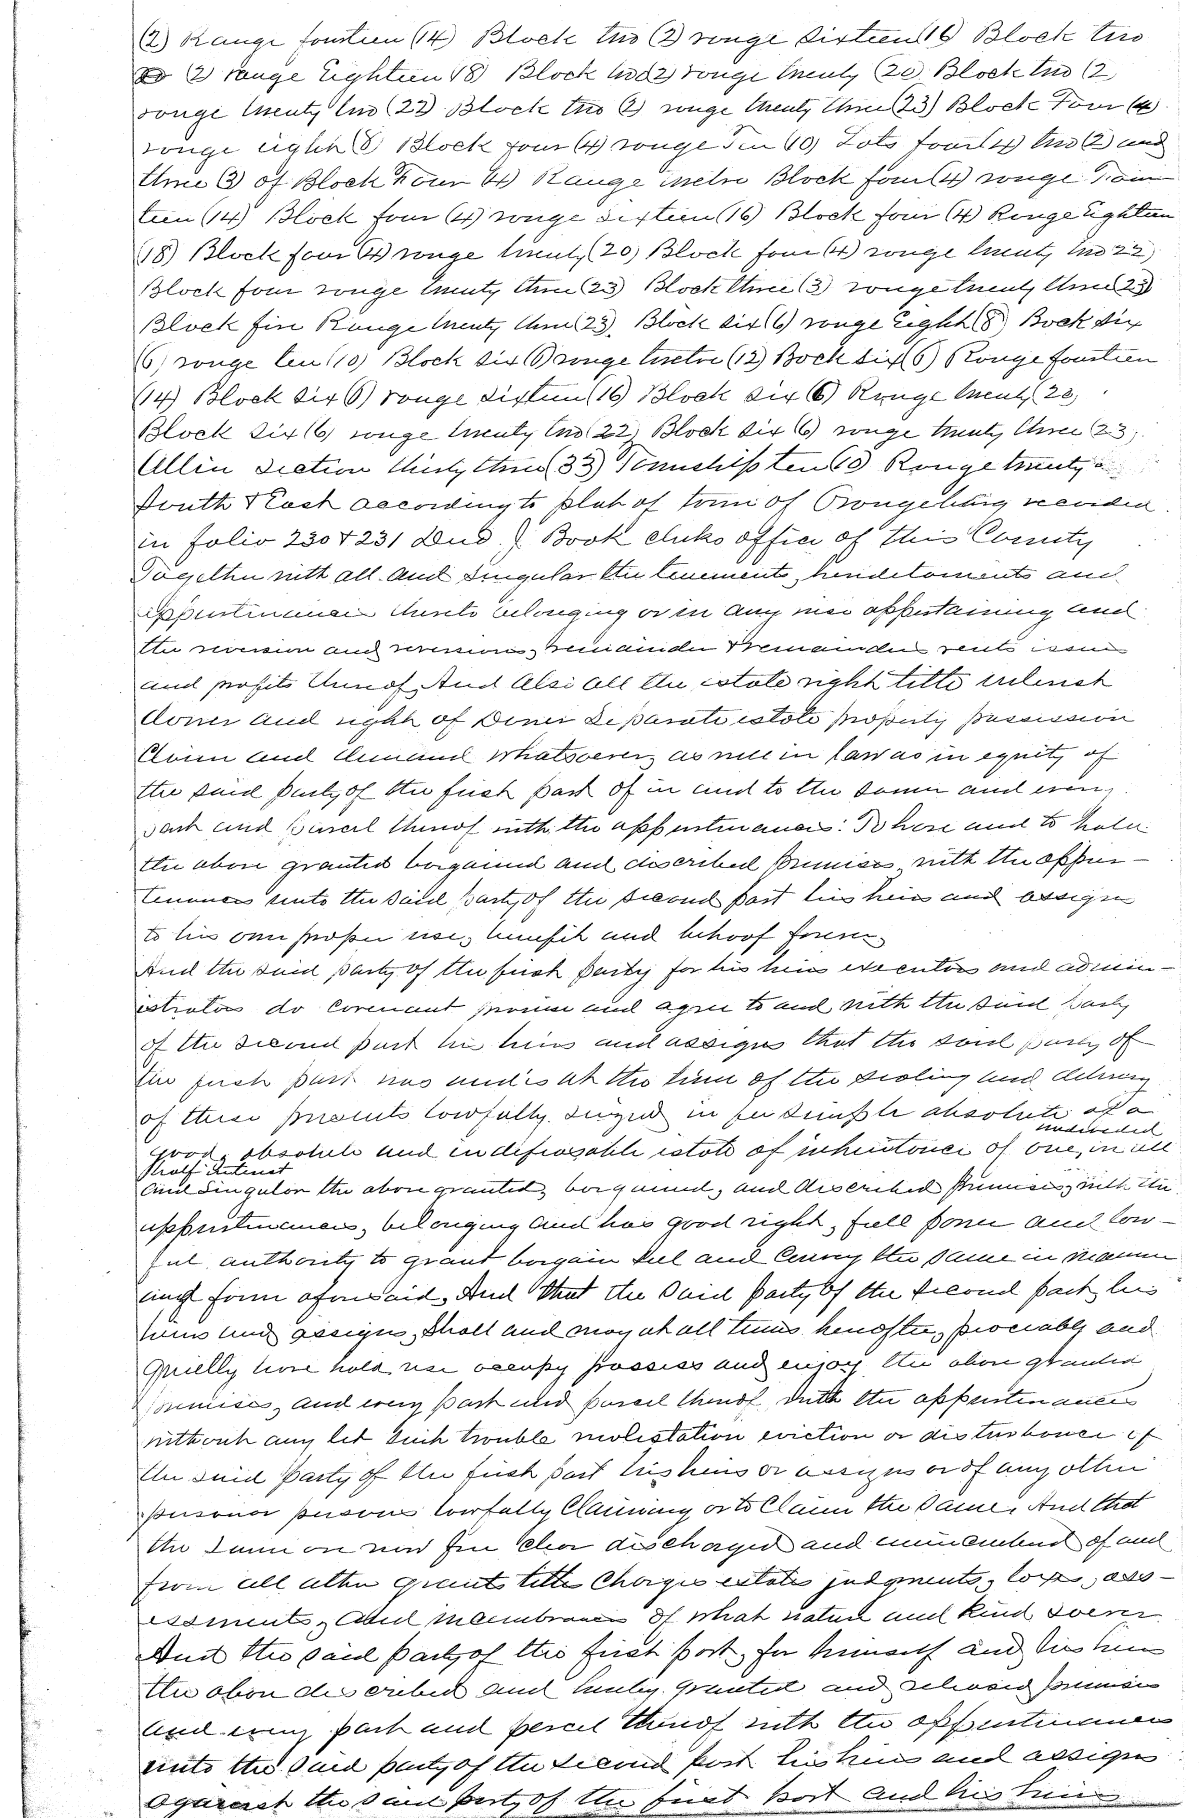 (2) Range fourteen (14) Block two (2) range Sixteen 16) Block two
(2) range Eighteen 18) Block two 2) range twenty (20) Block two (2,
range twenty two (22) Block two (2) range twenty three (23) Block Four (4)
range eight (8) Block four (4) range Ten 10) Lots four (4) two (2) and
three (3) of Block Four (4) Range twelve Block four (4) range Four
teen (14) Block four (4) range sixteen (16) Block four (4) Range Eighteen
(18) Block four (4) range twenty (20) Block four (4) range twenty two 22)
Block four range twenty three (23) Block three (3) range twenty three (23)
Block five Range twenty three (23), Block six (6) range Eight (8) Bock six
(6) range ten (10) Block six (6) range twelve (12) Bock six (6) Range fourteen
(14) Block six 6) range sixteen (16) Block six (6) Range twenty (20)
Block six (6) range twenty two (22) Block six (6) range twenty three (23)
All in Section thirty three (33) Township ten (10) Range twenty
South & East according to plat of town of recorded
in folio 230 & 231 Deed J. Book clerks office of this County
Together with all and Singular the tenements, hereditaments and
appurtinances thereto belonging or in any wise appertaining and
the reversion and reversions, remainder & remainders rents issues
and profits thereof, And Also all the estate right title interest
dower and right of Dower Separate estate property possession
Claim and demand whatsoever, as well in law as in equity of
the said party of the first part of in and to the same and every
part and parcel thereof with the appurtenances: To have and to hold
the above granted bargained and described premises with the appur-
tenances unto the said party of the second part his heirs and assigns
to his own proper use, benefit and behoof forever
And the said party of the first party for his heirs executors and admin-
istrators do covenant promise and agree to and with the said party
of the second part his heirs and assigns that the said party of
the first part was and is at the time of the sealing and delivery
of these presents lawfully seized in fee simple absolute of a
undivided
good, absolute and indefeasable estate of inheritance of one, in all
half Interest
and singular the above granted, bargained, and described premises, with the
appurtenances, belonging and has good right, full power and law-
ful authority to grant bargain sell and convey the same in manner
and form aforesaid, And that the said party of the second part, his
heirs and assigns, shall and may at all times hereafter, peaceably and
quietly have hold use occupy possess and enjoy the above granted
premises, and every part and parcel thereof with the appurtenances
without any let such trouble molestation eviction or disturbance of
the said party of the first part his heirs or assigns or of any other
person or persons lawfully Claiming or to Claim the Same, And that
the same are now free clear discharged and unincumbered of and
from all other grants titles Charges estates judgments, taxes, ass-
essments, and incumbrances of what nature and kind soever
And the said party of the first part, for himself and his heirs
the above described and hereby granted and released premises
and every part and parcel thereof with the appurtenances
unto the said party of the second part his heirs and assigns
against the said party of the first part and his heirs